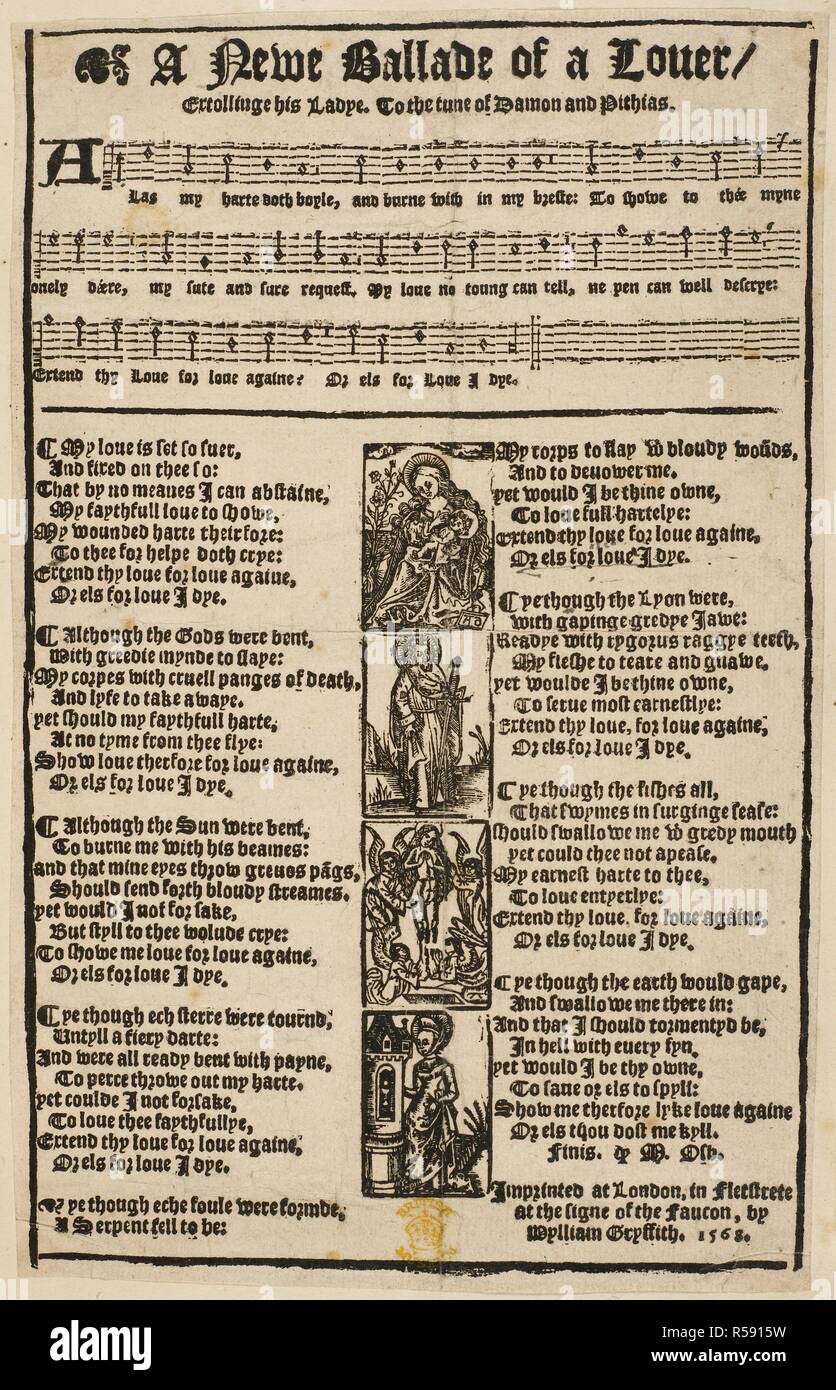 A Newe Ballade of a Louer/
Extollinge his Ladye. To the tune of Damon and Pithias.
ALas my harte doth boyle, and burne with in my breste: To showe to thée myne
onely déere, my sute and sure request. My loue no toung can tell, ne pen can well descrye:
Extend thy Loue for loue againe? Or els for Loue I dye.
¶ My loue is set so suer,
And fixed on thee so:
That by no meanes I can abstaine,
My faythfull loue to showe,
My wounded harte theirfore:
To thee for helpe doth crye:
Extend thy loue for loue againe,
Or els for loue I dye.
¶ Although the Gods were bent,
With greedie mynde to slaye:
My corpes with cruell panges of death,
And lyfe to take awaye.
yet should my faythfull harte,
At no tyme from thee flye:
Show loue therfore for loue againe,
Or els for loue I dye.
¶ Although the Sun were bent,
To burne me with his beames:
and that mine eyes throw greuos pãgs,
Should send forth bloudy streames.
yet would I not forsake,
But styll to thee wolude crye:
To showe me loue for loue againe,
Or els for loue I dye.
¶ ye though ech sterre were tournd,
Untyll a fiery darte:
And were all ready bent with payne,
To perce throwe out my harte.
yet coulde I not forsake,
To loue thee faythfullye,
Extend thy loue for loue againe,
Or els for loue I dye.
ye though eche foule were formde,
A Serpent fell to be:
My corps to slay wͭ bloudy woũds,
And to deuower me.
yet would I be thine owne,
To loue full hartelye:
Extend thy loue for loue againe,
Or els for loue I dye.
¶ ye though the Lyon were,
with gapinge gredye Jawe:
Readye with rygorus raggye teeth,
My fleshe to teare and gnawe.
yet woulde I be thine owne,
To serue most earnestlye:
Extend thy loue, for loue againe,
Or els for loue I dye.
¶ ye though the fishes all,
That swymes in surginge sease:
should swallowe me wͭ gredy mouth
yet could thee not apease.
My earnest harte to thee,
To loue entyerlye:
Extend thy loue, for loue againe,
Or els for loue I dye.
¶ ye though the earth would gape,
And swallowe me there in:
And that I should tormentyd be,
In hell with euery syn.
yet would I be thy owne,
To saue or els to spyll:
Show me therfore lyke loue againe
Or els thou dost me kyll.
Finis. qͩ M. Osb.
Imprinted at London, in Fletstrete
at the signe of the Faucon, by
Wylliam Gryffith. 1568.
alamy
Image ID: R5915W
www.alamy.com